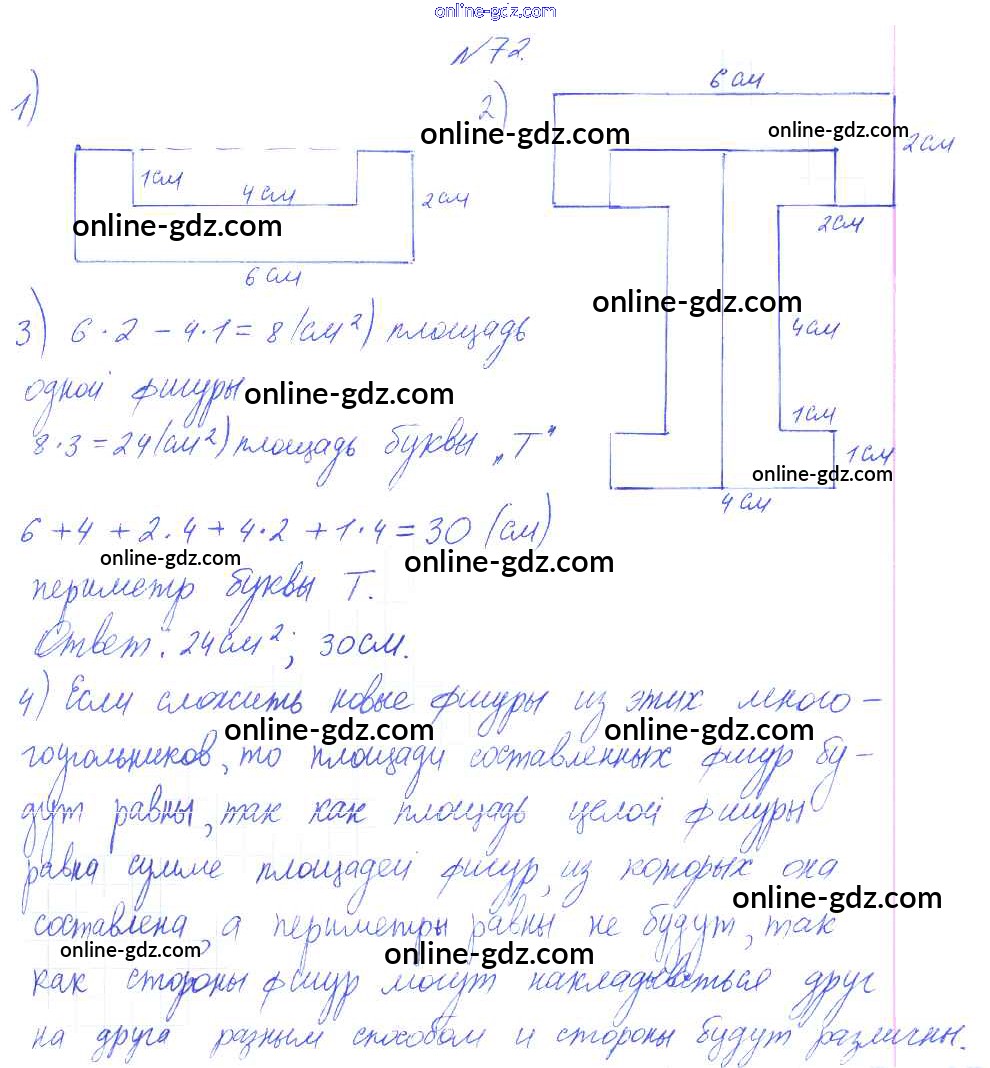 online-gdz.com
№72.
1)
2)
6 см
online-gdz.com
online-gdz.com
2см
1см
4 см
2см
online-gdz.com
2см
6 см
online-gdz.com
4см
3) 6·2 - 4·1 = 8 (см²) площадь
одной фигуры
online-gdz.com
1см
8·3 = 24 (см²) площадь буквы „Т"
1см
online-gdz.com
4 см
6 + 4 + 2·4 + 4·2 + 1·4 = 30 (см)
online-gdz.com
online-gdz.com
периметр буквы Т.
Ответ: 24см²; 30см.
4) Если сложить новые фигуры из этих много-
online-gdz.com
online-gdz.com
гоугольников, то площади составленных фигур бу-
дут равны, так как площадь целой фигуры
равна сумме площадей фигур, из которых она
online-gdz.com
составлена, а периметры равны не будут, так
online-gdz.com
online-gdz.com
как стороны фигур могут накладываться друг
на друга разным способом и стороны будут различны.